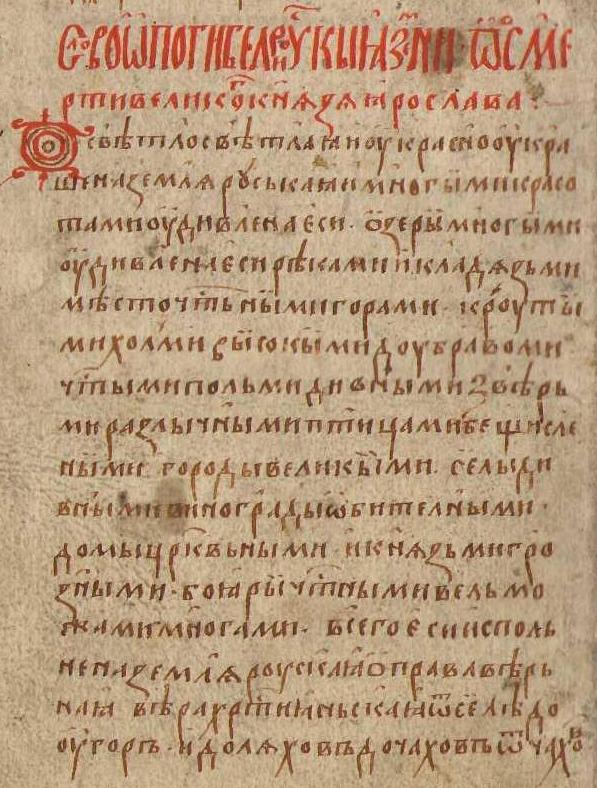 Слово ѿ погибели Рꙋскыꙗ земли · ѿ сме
рти великоⷢ кнѧзѧ ꙗрослава :
О свѣтло свѣтлаꙗ и оукрасно оукра
шена землѧ роуськаꙗ и многыми красо
тами оудивлена еси · ѡзеры многыми
оудивлена еси рѣками и кладѧзьми
мѣсточтⷭьными горами · кроуты
ми холми высокыми доубравоми
чⷭтыми польми дивными звѣрь
ми разлычными птицами бещисле
ными городы великыми · селы ди
вными винограды ѡбителными ·
домы црⷦвьными · и кнѧзьми гро
зными · боꙗры чⷭтными вельмо
жами многами · всего еси исполь
нена землѧ роускаꙗ ѡ прававѣрь
наꙗ вѣра хрⷭтиꙗньскаꙗ ѿселѣ до
оугоръ · и до лѧховъ до чаховъ ѿ чахоⷡ